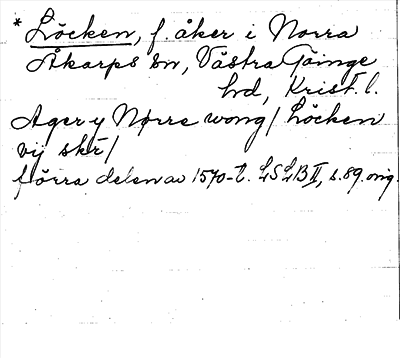 * Löcken, f. åker i Norra
Åkarps sn, Västra Göinge
hd, Krist. l.
Ager y Nørre wong / Löcken
vij skr /
förra delen av 1570-t. LSLB II, s. 89. orig.